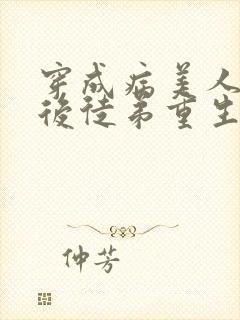 穿成病美人
後徒弟重生
仲芳